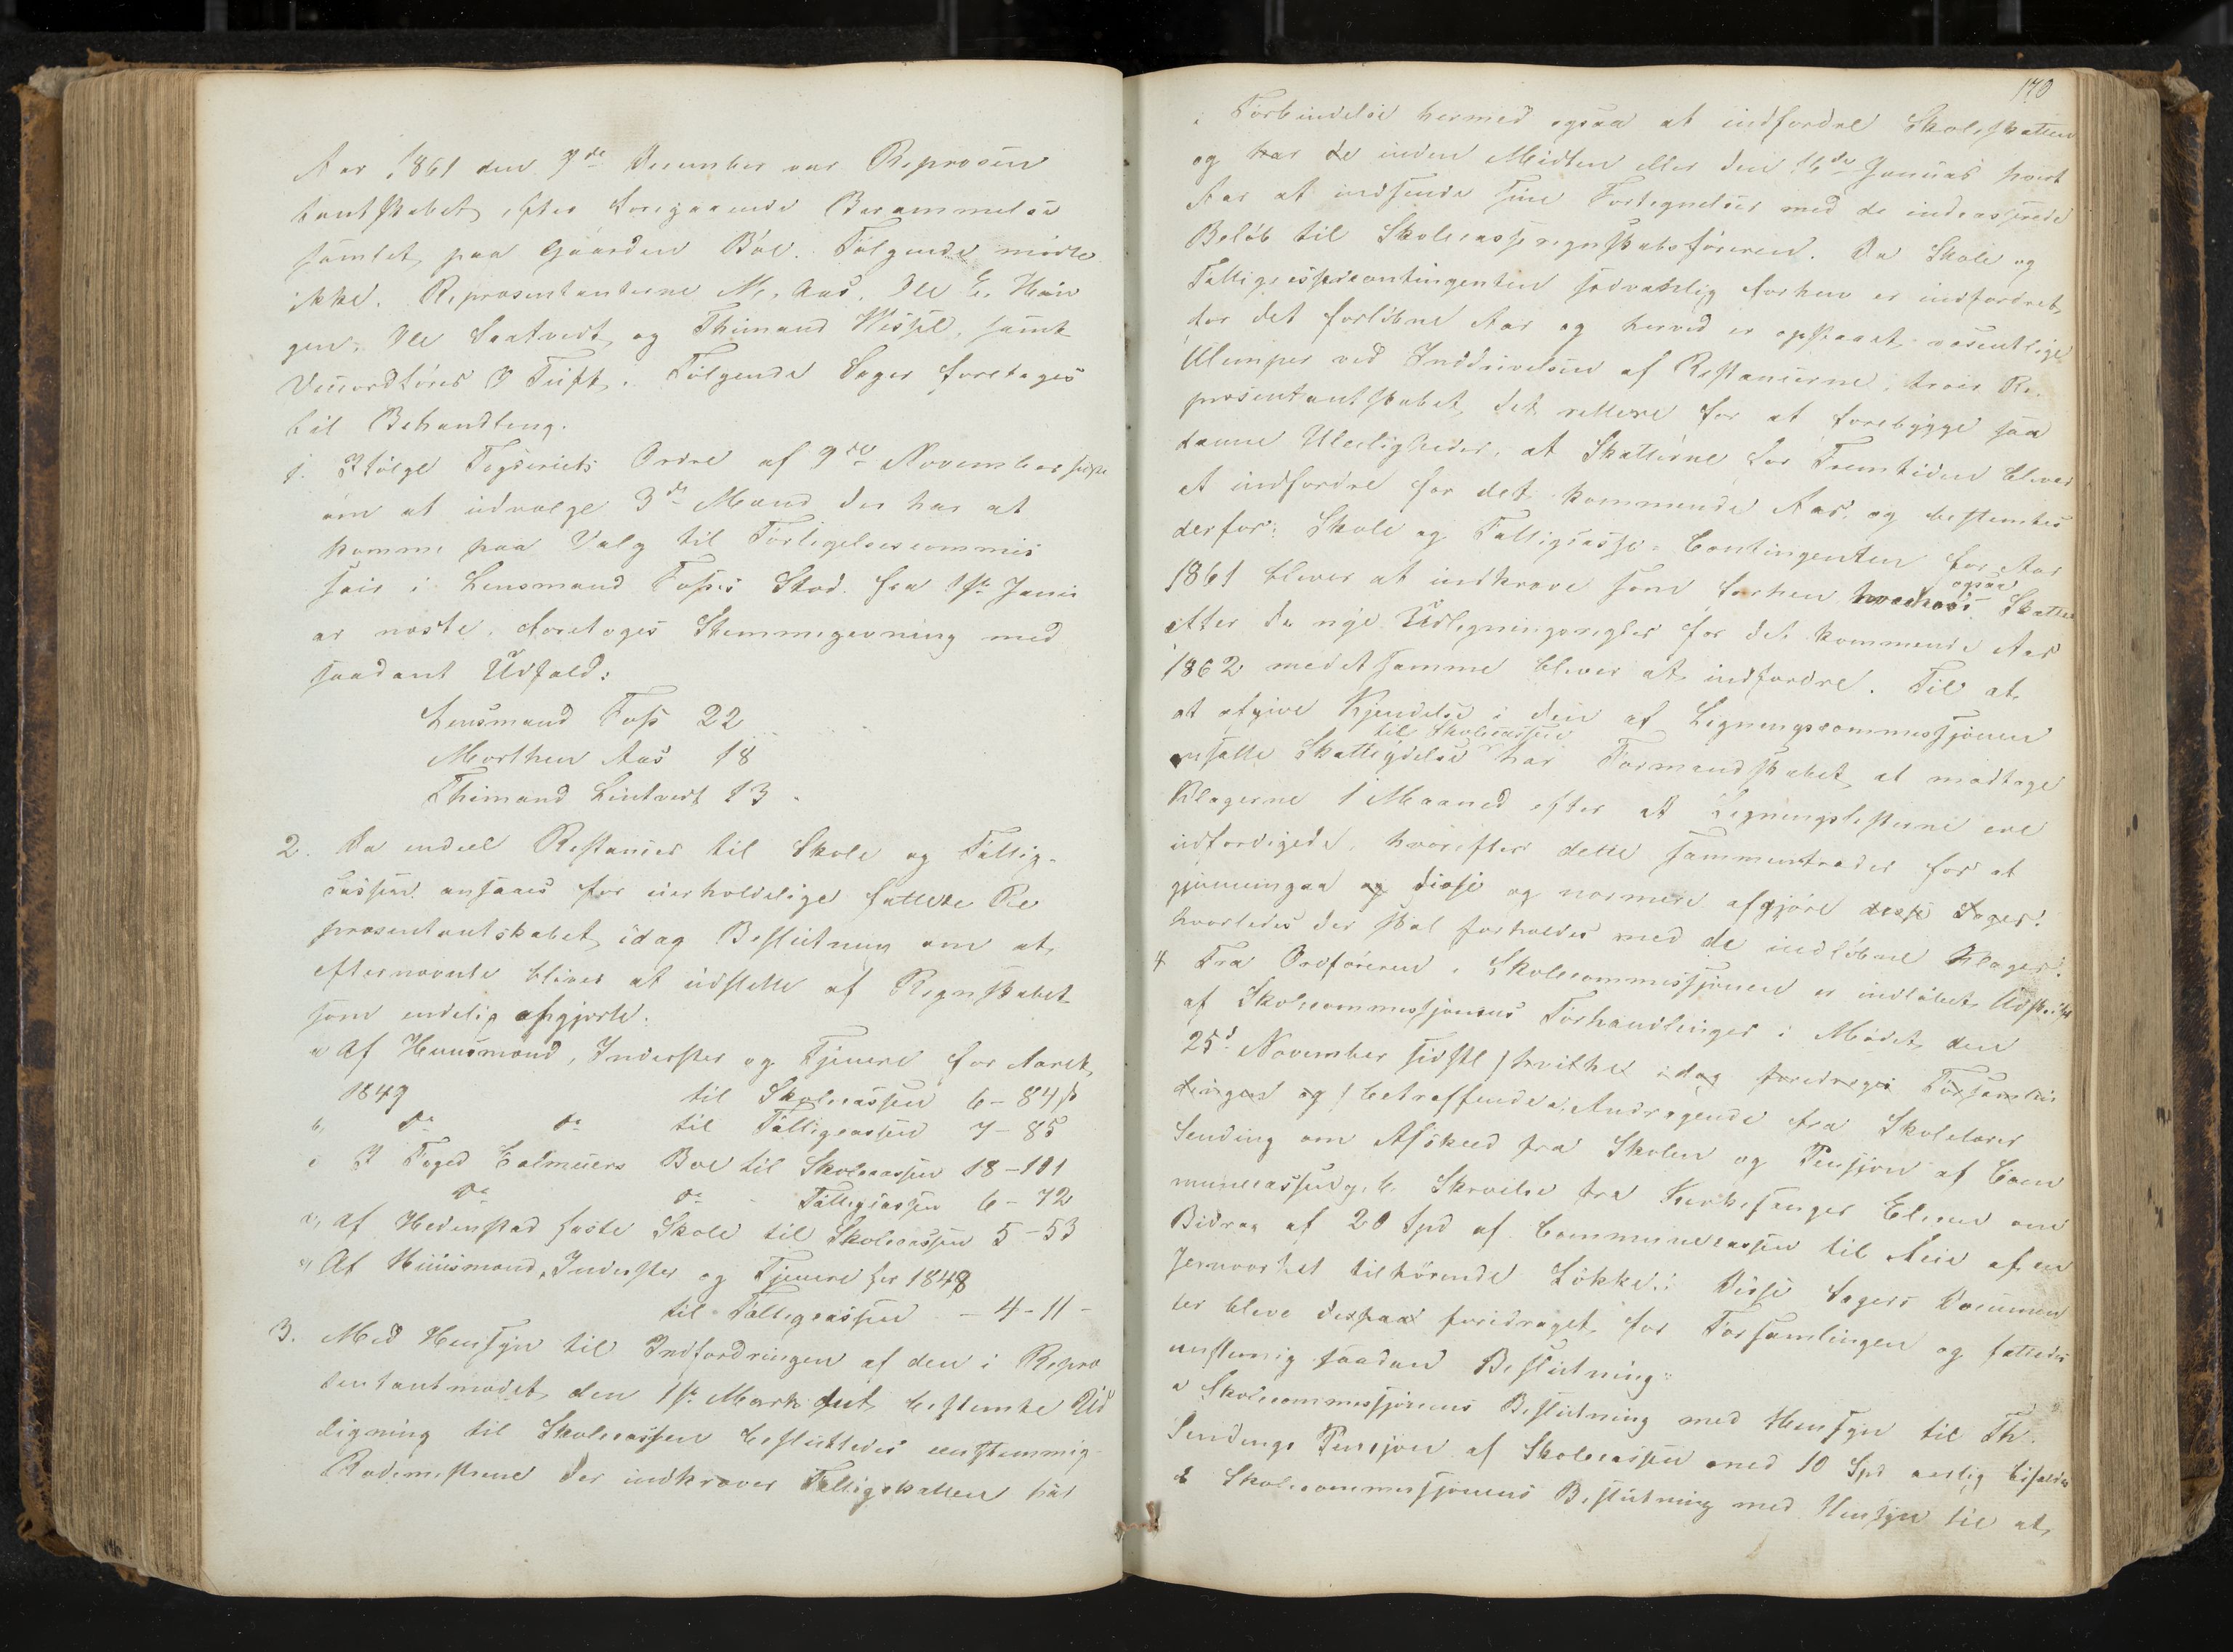 Aar 1861 den 7de December var Repræsen
tantskabet efter foregaaende Berammelse
samlet paa Gaarden Böe. Fölgende mödte
ikke. Repræsentanterne M. Aas, Ole E. Hau
gen, Ole Saatvedt og Thimand Wessel, samt
Viceordförer O Tuft. Fölgende Sager foretages
til Behandling.
1. Ifölge Fogderiets Ordre af 9de November
om at udvælge 3de Mænd der har at
komme paa Valg til Forligelsescommis
sair i Lensmand Foss's Sted fra 1ste Janu
ar næste, foretoges Stemmegivning med
saadant Udfald:
Lensmand Foss 22
Morthen Aas 18
Thimand Lintvedt 13
2. Da endeel Restancer til Skole og Fattig-
cassen ansaaes for uerholdelige fattede Re
præsentantskabet idag Beslutning om at
efternævnte bliver at udslette af Regnskabet
som endelig afgjorte.
a Af Huusmænd, Inderster og Tjenere for Aaret
1849 til Skolecassen 6 - 84 ß
b, do do til Fattigcassen 7 - 85
c I Foged Colmeiers Boe til Skolecassen 18 - 101
do do Fattigcassen 6 - 72
d, af Hedenstad faste Skole til Skolecassen 5 - 53
e, Af Huusmænd, Inderster og Tjenere for 1848
til Fattigcassen - 4 - 11 -
3. Med Hensyn til Indfordringen af den i Repræ
sentantmödet den 1ste Marts bestemte Ud
ligning til Skolecassen besluttedes eenstemmig
Rodemestrene der indkræver Fattigskatten har
170
i Forbindelse hermed ogsaa at indfordre Skoleskatten
og har de inden Midten eller den 16de Januar hvert
Aar at indsende sine Fortegnelser med de indcasserede
Belöb til Skolecasseregnskabsföreren. Da Skole og
Fattigcassecontingenten sedvanlig forhen er indfordret
for det forlöbne Aar og herved er opstaaet væsentlige
Ulemper ved Inddrivelsen af Restancerne, troer Re-
præsentantskabet det rettere for at forebygge saa
danne Uleiligheder, at Skatterne for Fremtiden bliver
at indfordre for det kommende Aar og bestemtes
derfor: Skole og Fattigcasse-Contingenten for Aar
1861 bliver at indkræve som forhen hvorhos ogsaa Skatten
efter de nye Udligningsregler for det kommende Aar
1862 medetsamme bliver at indfordre. Til at
at afgive Kjendelse i den af Ligningscommissjonen
ansatte Skatteydelse til Skolecassen har Formandskabet at modtage
Klagerne 1 Maaned efter at Ligningslisterne ere
udfærdigede, hvorefter dette sammentræder for at
gjennemgaa og disse og nærmere afgjöre disse Sager.
hvorledes der skal forholdes med de indlöbne Klager.
4 Fra Ordföreren i Skolecommissjonen er indlöbet Udskrift
af Skolecommissjonens Forhandlinger i Mödet den
25de November sidstl hvilke idag foredroges Forsam
lingen og betreffende a, Andragende fra Skolelærer
Sending om Afsked fra Skolen og Pensjon af Com
munecassen, b. Skrivelse fra Kirkesanger om
Bidrag af 20 Spd af Communecassen til Leie af en
Jernværket tilhörende Lökke. Disse Sagers Documen
ter bleve foredraget for Forsamlingen og fattedes
enstemmig saadan Beslutning:
a Skolecommissjonens Beslutning med Hensyn til Th.
Sendings Pensjon af Skolecassen med 10 Spd aarlig bifaldes
b Skolecommissjonens Beslutning med Hensyn til at